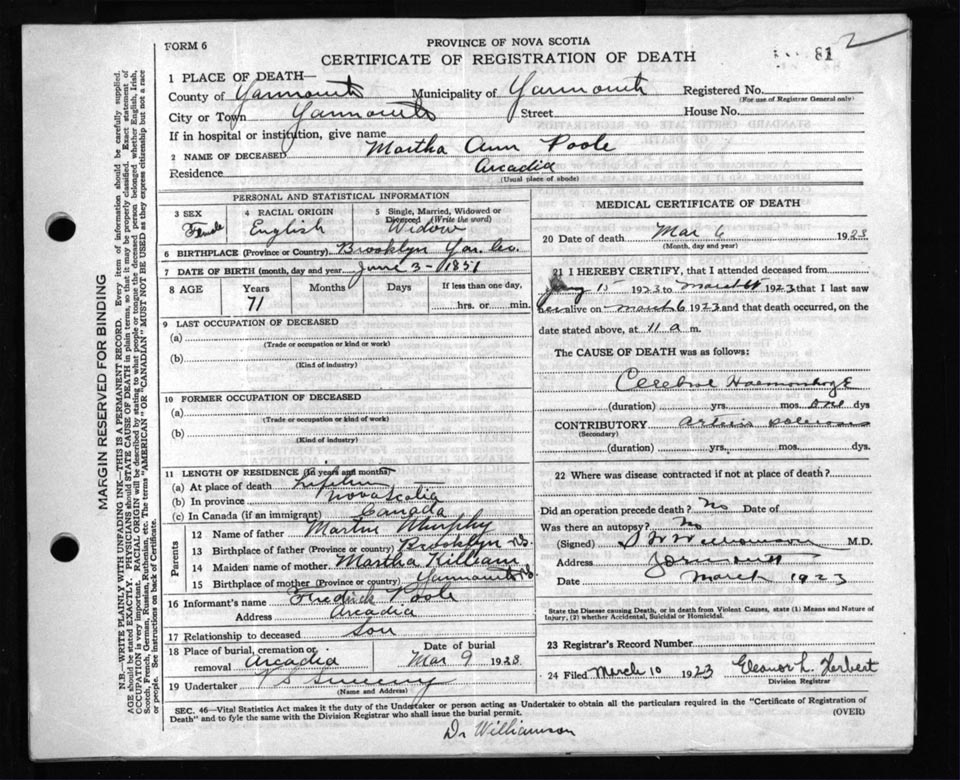 2
FORM 6
PROVINCE OF NOVA SCOTIA
81
CERTIFICATE OF REGISTRATION OF DEATH
1 PLACE OF DEATH—
County of Yarmouth Municipality of Yarmouth Registered No.
(For use of Registrar General only)
City or Town Yarmouth Street House No.
If in hospital or institution, give name
2 NAME OF DECEASED Martha Ann Poole
Residence Arcadia
(Usual place of abode)
PERSONAL AND STATISTICAL INFORMATION
3 SEX Female
4 RACIAL ORIGIN English
5 Single, Married, Widowed or Divorced (Write the word) Widow
6 BIRTHPLACE (Province or Country) Brooklyn Yar. Co.
7 DATE OF BIRTH (month, day and year) June 3 - 1851
8 AGE Years Months Days If less than one day,
71 hrs. or min.
9 LAST OCCUPATION OF DECEASED
(a)
(Trade or occupation or kind or work)
(b)
(Kind of industry)
10 FORMER OCCUPATION OF DECEASED
(a)
(Trade or occupation or kind of work)
(b)
(Kind of industry)
11 LENGTH OF RESIDENCE (In years and months)
(a) At place of death Lifetime
(b) In province Nova Scotia
(c) In Canada (if an immigrant) Canada
Parents
12 Name of father Martin Murphy
13 Birthplace of father (Province or country) Brooklyn N.S.
14 Maiden name of mother Martha Killam
15 Birthplace of mother (Province or country) Yarmouth N.S.
16 Informant's name Fredrick Poole
Address Arcadia
17 Relationship to deceased Son
18 Place of burial, cremation or removal Arcadia
Date of burial Mar 9 1923
19 Undertaker V S Sweeny
(Name and Address)
MEDICAL CERTIFICATE OF DEATH
20 Date of death Mar 6 1923
(Month, day and year)
21 I HEREBY CERTIFY, that I attended deceased from
Jany 15 1923 to March 1923 that I last saw
her alive on March 6 1923 and that death occurred, on the
date stated above, at 11 a m.
The CAUSE OF DEATH was as follows:
Cerebral Haemorrhage
(duration) yrs. mos. one dys
CONTRIBUTORY
(Secondary)
(duration) yrs. mos. dys.
22 Where was disease contracted if not at place of death?
Did an operation precede death? No Date of
Was there an autopsy? No
(Signed) Williamson M.D.
Address Yarmouth
Date March 1923
State the Disease causing Death, or in death from Violent Causes, state (1) Means and Nature of
Injury, (2) whether Accidental, Suicidal or Homicidal.
23 Registrar's Record Number
24 Filed March 10 1923 Eleanor L. Herbert
Division Registrar
SEC. 46—Vital Statistics Act makes it the duty of the Undertaker or person acting as Undertaker to obtain all the particulars required in the "Certificate of Registration of
Death" and to fyle the same with the Division Registrar who shall issue the burial permit.
(OVER)
Dr Williamson
MARGIN RESERVED FOR BINDING
N.B.—WRITE PLAINLY WITH UNFADING INK—THIS IS A PERMANENT RECORD. Every item of information should be carefully supplied.
AGE should be stated EXACTLY. PHYSICIANS should STATE CAUSE OF DEATH in plain terms, so that it may be properly classified. Exact statement of
OCCUPATION is very important. RACIAL ORIGIN will be described by stating to what people or tongue the deceased person belonged whether English, Irish,
Scotch, French, German, Russian, Ruthenian, etc. The terms "AMERICAN" OR "CANADIAN" MUST NOT BE USED as they express citizenship but not a race
or people. See instructions on back of Certificate.